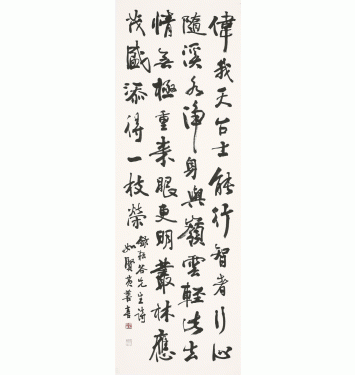 偉哉天台士能行智者行心
隨溪水淨身與嶺雲輕法出
情無極重來眼更明叢林應
茂盛添得一枝榮
錄拾谷先生詩